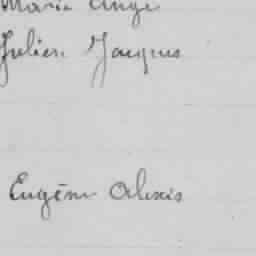 Marie Ange
Julien Jacques
Eugène Alexis